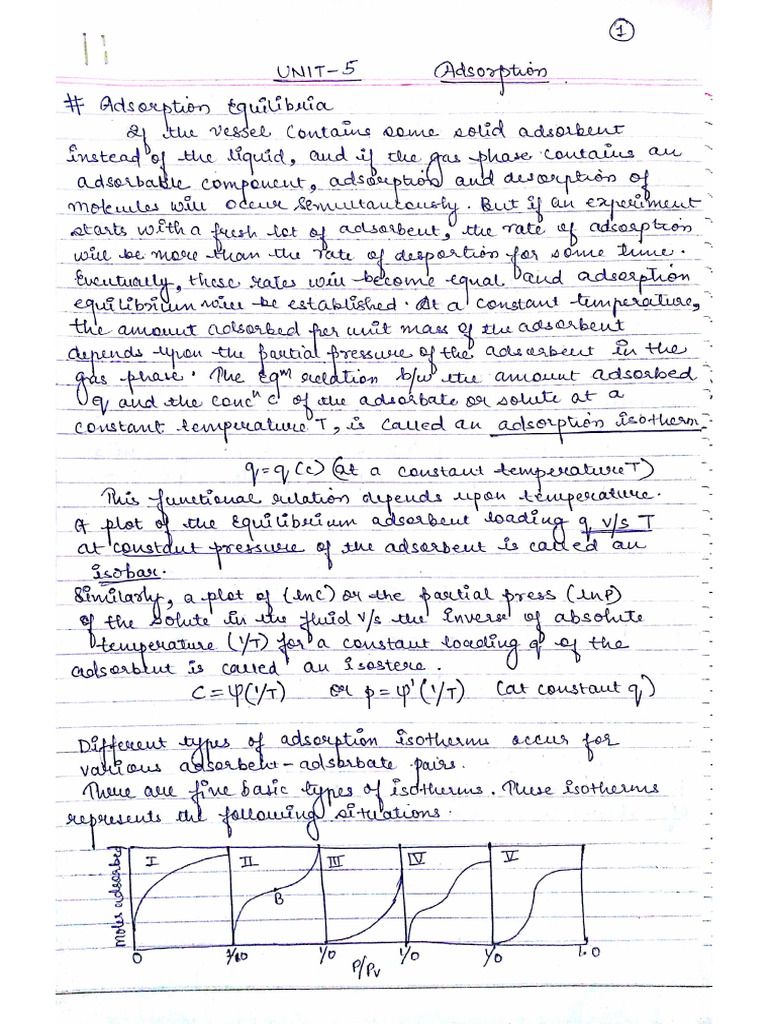 1
UNIT-5 Adsorption
# Adsorption Equilibria
If the vessel contains some solid adsorbent
instead of the liquid, and if the gas phase contains an
adsorbable component, adsorption and desorption of
molecules will occur Semultaneously. But if an experiment
starts with a fresh lot of adsorbent, the rate of adsorption
will be more than the rate of desportion for some time.
Eventually, these rates will become equal and adsorption
equilibrium will be established. At a constant temperature,
the amount adsorbed per unit mass of the adsorbent
depends upon the partial pressure of the adsorbent in the
gas phase. The eqᵐ relation b/w the amount adsorbed
q and the concⁿ c of the adsorbate or solute at a
constant temperature T, is called an adsorption isotherm
q = q (c) (at a constant temperature T)
This functional relation depends upon temperature.
A plot of the equilibrium adsorbent loading q v/s T
at constant pressure of the adsorbent is called an
isobar.
Similarly, a plot of (lnC) or the partial press (lnP)
of the solute in the fluid v/s the inverse of absolute
temperature (1/T) for a constant loading q of the
adsorbent is called an isostere.
C = φ(1/T) or p = φ'(1/T) (at constant q)
Different types of adsorption isotherms occur for
various adsorbent-adsorbate pairs.
There are five basic types of isotherms. These isotherms
represents the following situations.
Moles adsorbed
I II III IV V
B
0 1/0 1/0 1/0 1.0
P/Pv